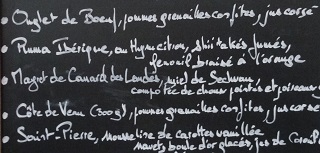 • Onglet de Boeuf, pommes grenailles confites, jus corsé
• Pluma Ibérique, au thym citron, shiitakés fumés,
fenouil braisé à l'orange
• Magret de Canard des Landes, miel de Sechuan,
compotée de choux pointus et poireaux
• Côte de Veau (300g), pommes grenailles confites, jus corsé
• Saint-Pierre, mousseline de carottes vanillée
navets boule d'or glacés, jus de